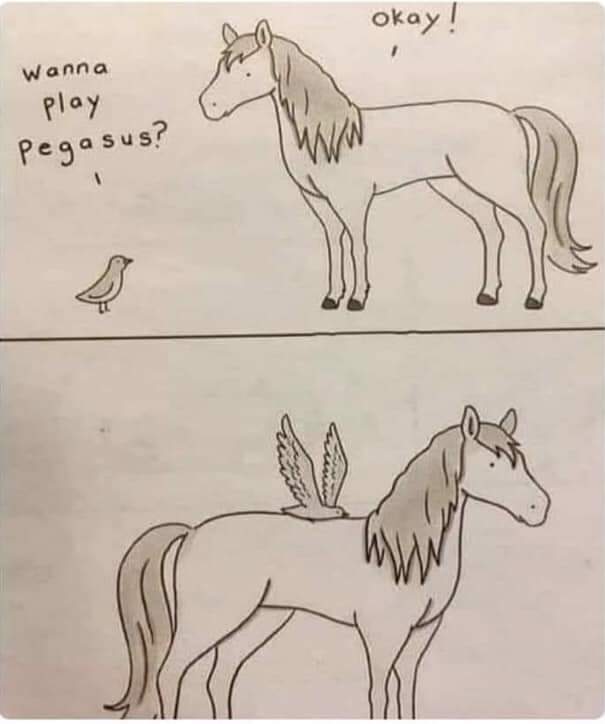 Wanna
Play
Pegasus?
okay!